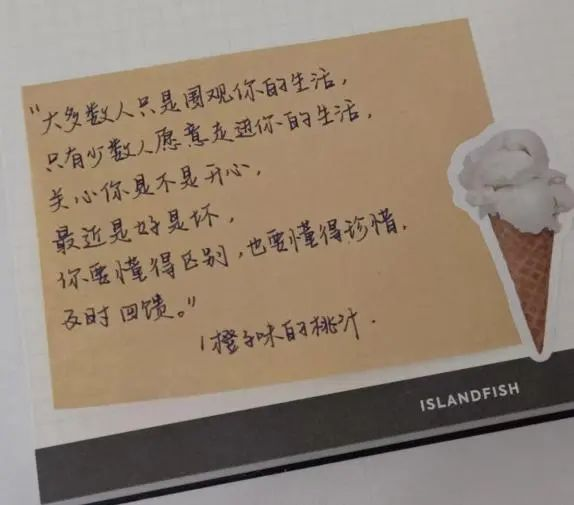 “大多数人只是围观你的生活，
只有少数人愿意走进你的生活，
关心你是不是开心，
最近是好是坏，
你要懂得区别，也要懂得珍惜，
及时回馈。”
\橙子味的桃汁.
ISLANDFISH